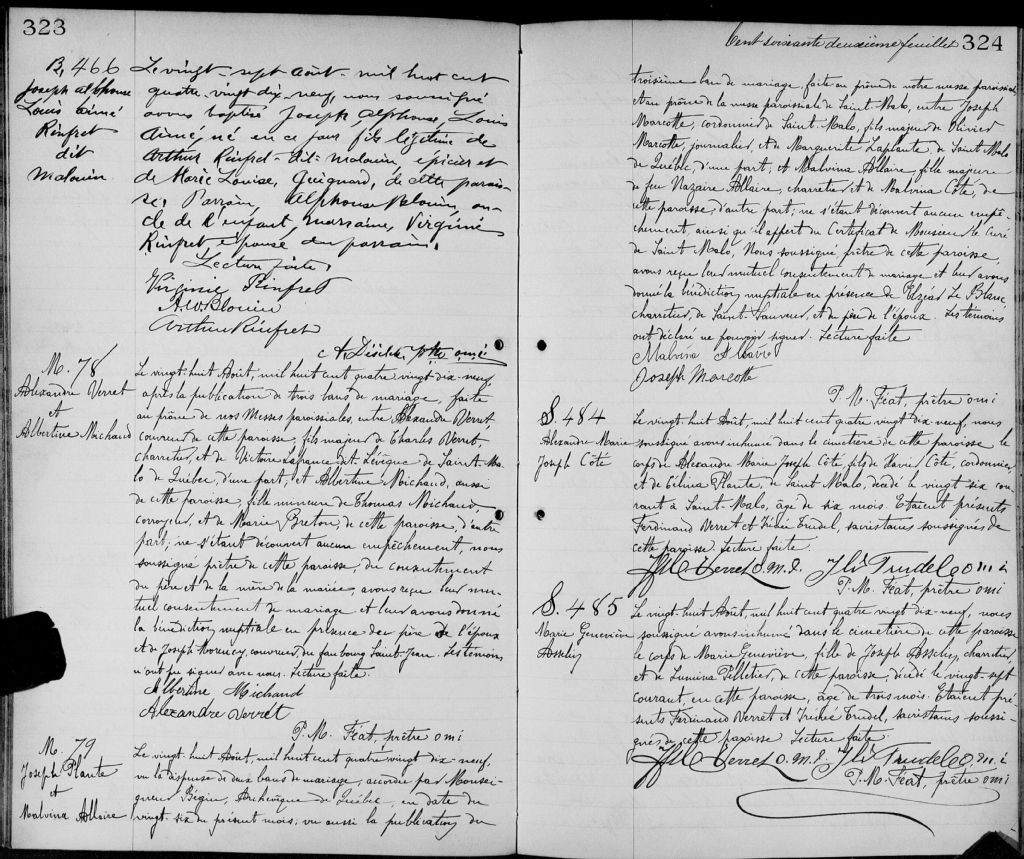 323
B, 466
Joseph Alphonse
Louis Aimé
Rinfret
dit
Malouin
Le vingt-sept Août-mil huit cent
quatre-vingt dix-neuf, nous soussigné
avons baptisé Joseph Alphonse, Louis
Aimé, né en ce jour fils légitime de
Arthur Rinfret-dit-Malouin, epicier et
de Marie Louise, Guignard, de cette parois-
se, Parrain, Alphonse Blouin, on-
cle de l'enfant marraine, Virginie
Rinfret épouse du parrain.
Lecture faite,
Virginie Rinfret
A. W. Blouin
Arthur Rinfret
ptre omi
M. 78
Alexandre Verret
et
Albertine Michaud
Le vingt-huit Août, mil huit cent quatre vingt dix-neuf,
après la publication de trois bans de mariage, faite
au prône de nos Messes paroissiales, entre Alexandre Verret
couvreur de cette paroisse, fils majeur de Charles Verret,
charretier, et de Victoire Lafrance dit Lévêque de Saint Ma-
lo de Québec, d'une part, et Albertine Michaud, aussi
de cette paroisse, fille mineure de Thomas Michaud,
corroyeur, et de Marie Breton, de cette paroisse, d'autre
part; ne s'étant découvert aucun empêchement, nous
soussigné prêtre de cette paroisse, du consentement
du père et de la mère de la mariée, avons reçu leur mu-
tuel consentement de mariage et leur avons donné
la bénédiction nuptiale en présence des père de l'époux
et de Joseph Morency, couvreur, du faubourg Saint-Jean. Les témoins
n'ont pu signer avec nous. Lecture faite.
Albertine Michaud
Alexandre Verret
P. M. Féat, prêtre omi
M. 79
Joseph Plante
et
Malvina Allaire
Le vingt-huit Août, mil huit cent quatre vingt dix-neuf,
vu la dispense de deux bans de mariage, accordée par Monsei-
gneur Bégin, Archevêque de Québec, en date du
vingt-six du présent mois; vu aussi la publication du
Cent soixante deuxième feuillet 324
troisième ban de mariage, faite au prône de notre messe paroissiale
et au prône de la messe paroissiale de Saint-Malo, entre Joseph
Marcotte, cordonnier de Saint-Malo, fils majeur de Olivier
Marcotte, journalier, et de Marguerite Laplante, de Saint Malo
de Québec, d'une part, et Malvina Allaire, fille majeure
de feu Nazaire Allaire, charretier, et de Malvina Côté, de
cette paroisse, d'autre part; ne s'étant découvert aucun empê-
chement, ainsi qu'il appert du Certificat de Monsieur le Curé
de Saint-Malo, Nous soussigné, prêtre de cette paroisse,
avons reçu leur mutuel consentement de mariage et leur avons
donné la bénédiction nuptiale en présence de Elzéar Le Blanc,
charretier, de Saint-Sauveur, et du père de l'époux. Les témoins
ont déclaré ne pouvoir signer. Lecture faite
Malvina Allaire
Joseph Marcotte
P. M. Féat, prêtre omi
S. 484
Alexandre Marie
Joseph Côté
Le vingt-huit Août, mil huit cent quatre vingt dix-neuf, nous
soussigné avons inhumé dans le cimetière de cette paroisse le
corps de Alexandre Marie Joseph Côté, fils de Xavier Côté, cordonnier,
et de Célina Plante, de Saint-Malo, décédé le vingt-six cou-
rant à Saint-Malo, âgé de six mois. Etaient présents
Ferdinand Verret et Irénée Trudel, sacristains soussignés de
cette paroisse. Lecture faite.
Verret O.M.I. Trudel o m i
P. M. Féat, prêtre omi
S. 485
Marie Geneviève
Asselin
Le vingt-huit Août, mil huit cent quatre vingt dix-neuf, nous
soussigné avons inhumé dans le cimetière de cette paroisse
le corps de Marie Geneviève, fille de Joseph Asselin, charretier,
et de Lumina Pelletier, de cette paroisse, décédé le vingt-sept
courant, en cette paroisse, âgé de trois mois. Etaient pré-
sents Ferdinand Verret et Irénée Trudel, sacristains soussi-
gnés de cette paroisse. Lecture faite.
Verret O.M.I. Trudel o m i
P. M. Féat, prêtre omi